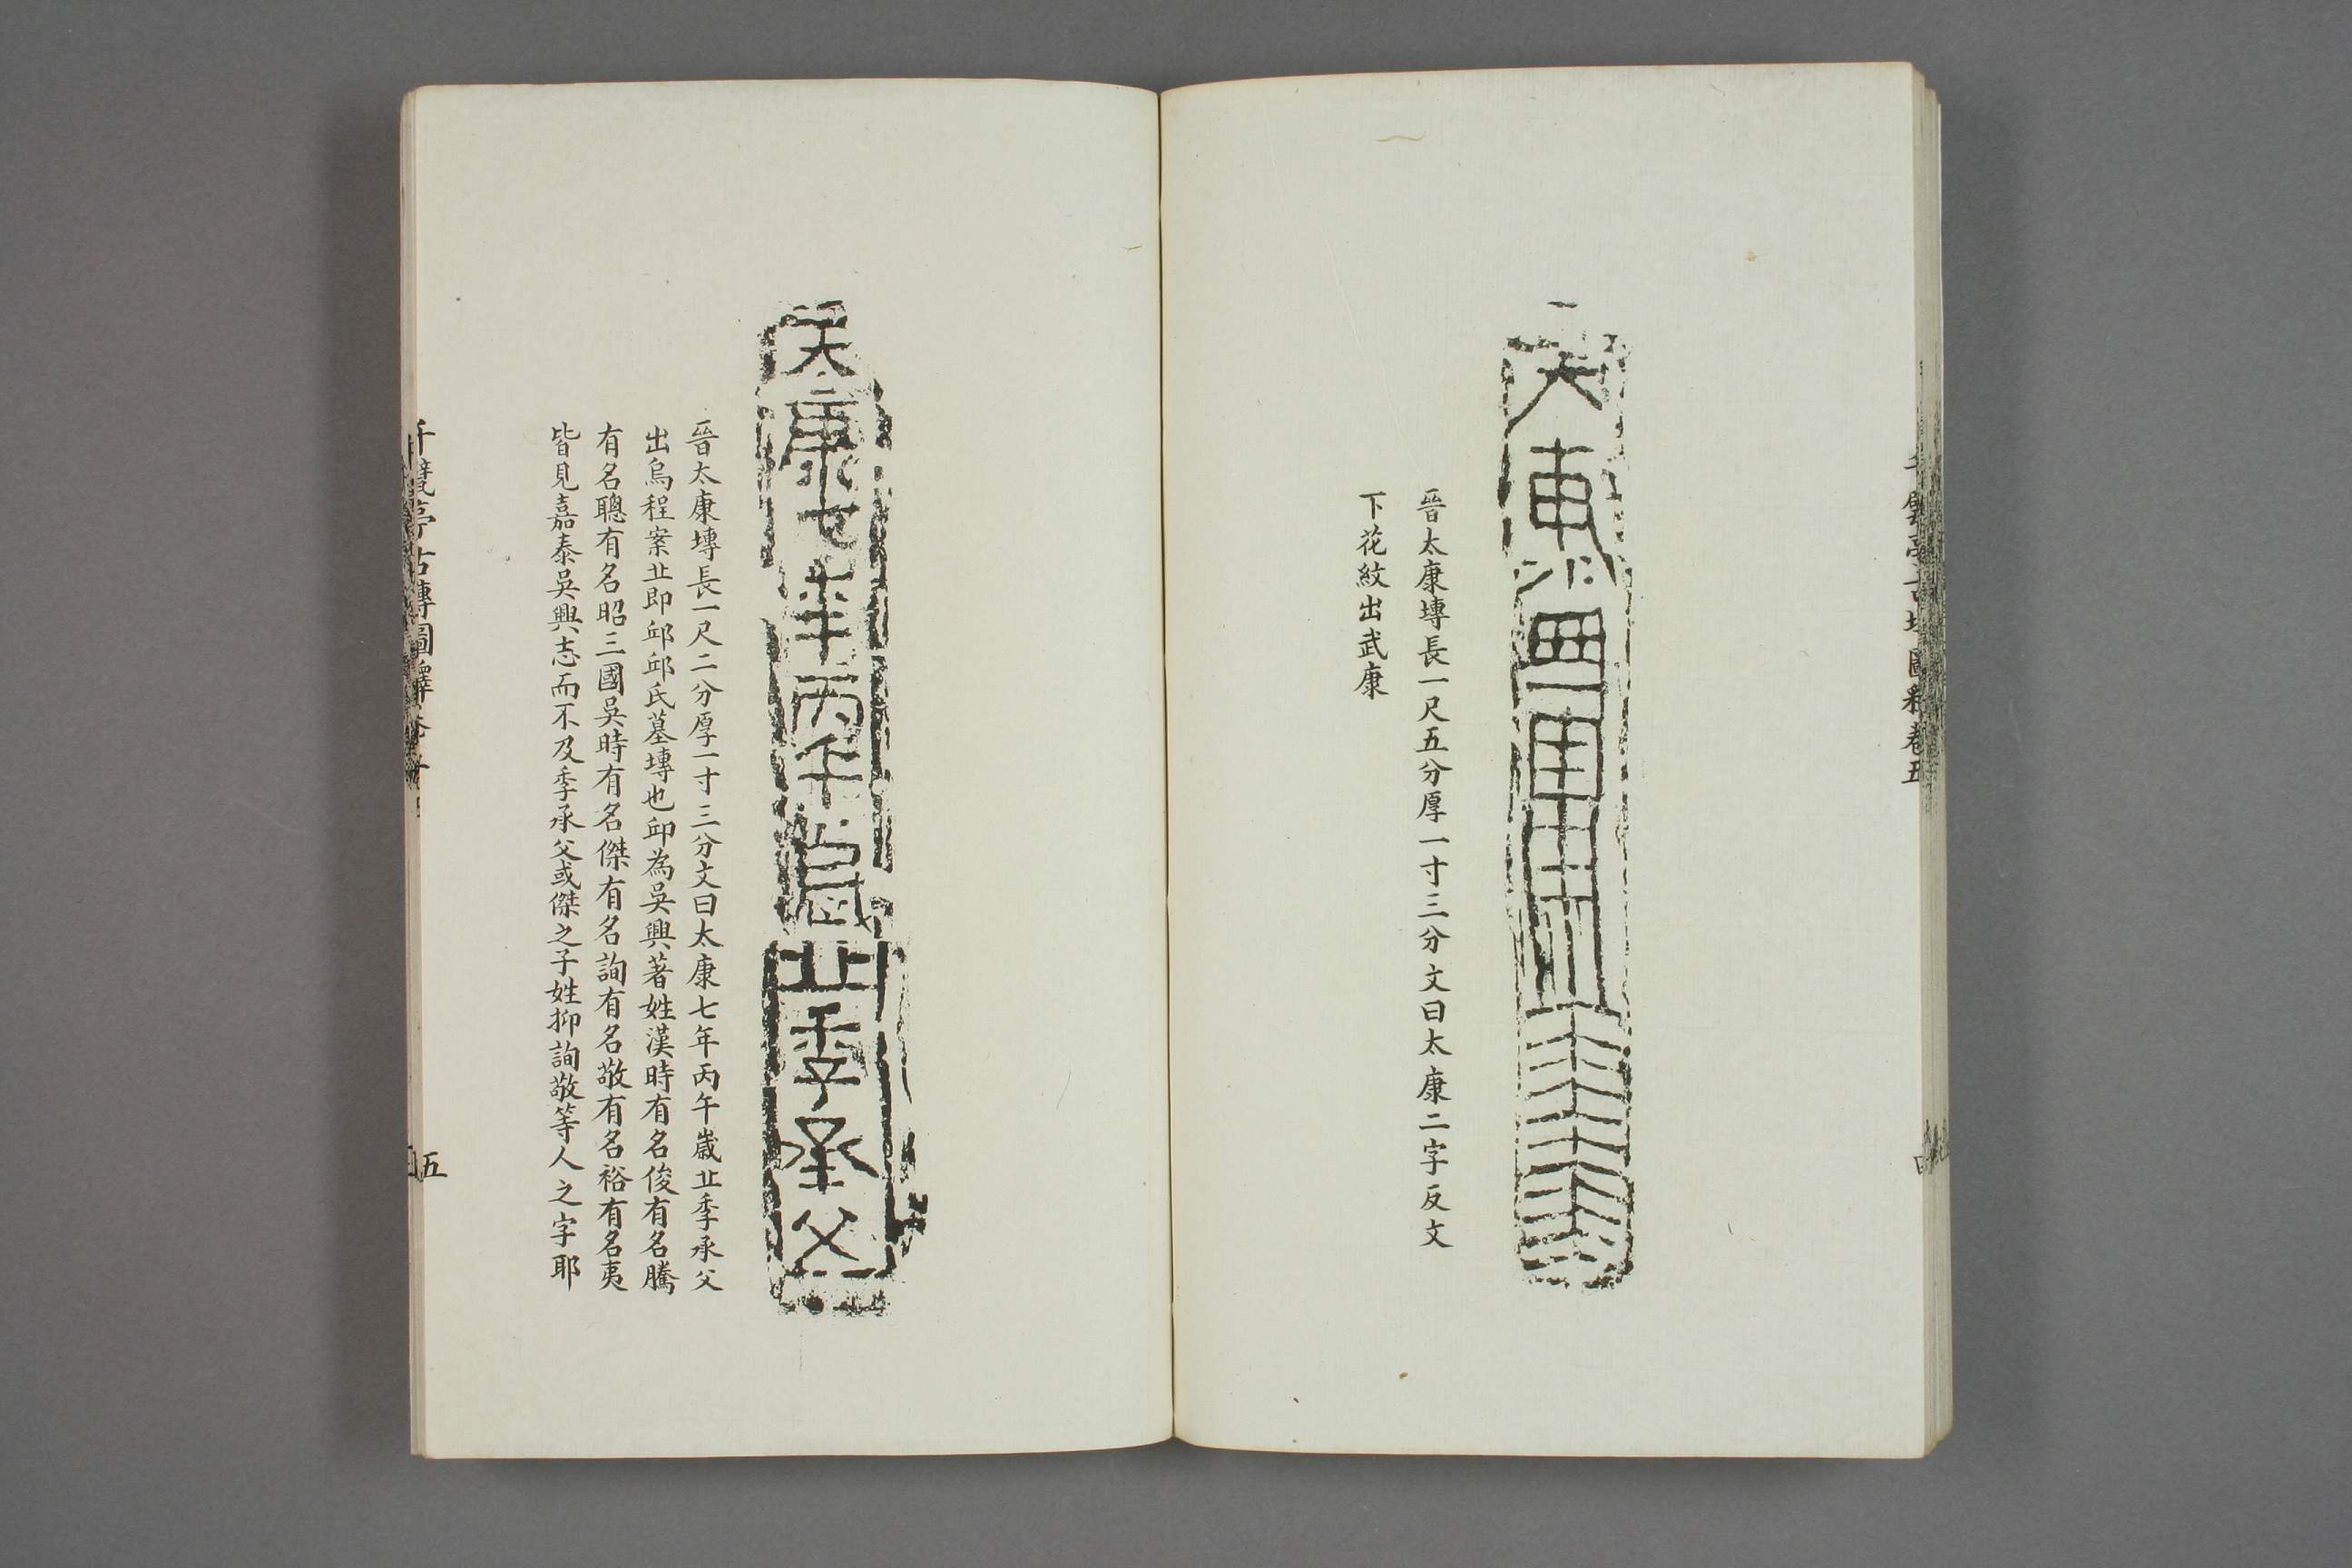 晉太康塼長一尺五分厚一寸三分文曰太康二字反文
下花紋出武康
太康七年丙午歲㐀季承父
晉太康塼長一尺二分厚一寸三分文曰太康七年丙午歲㐀季承父
出烏程案㐀即邱邱氏墓塼也邱為吳興著姓漢時有名俊有名騰
有名聰有名昭三國吳時有名傑有名詢有名敬有名裕有名夷
皆見嘉泰吳興志而不及季承父或傑之子姓抑詢敬等人之字耶
五